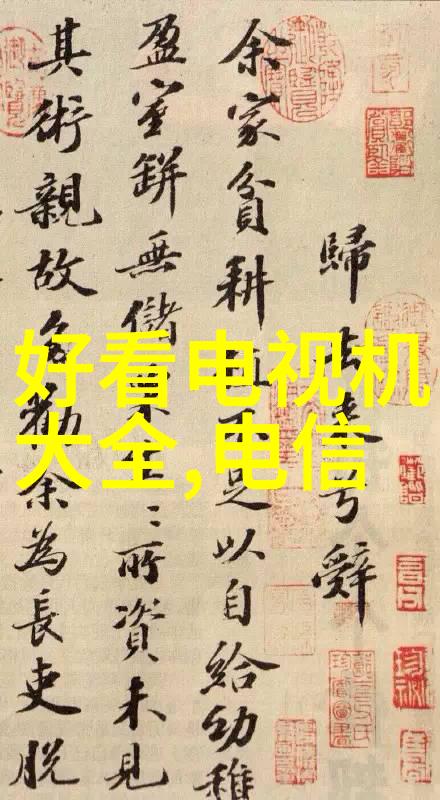 好看电视机
大全,电信
歸去来兮辭
余家貧耕植不足以自給幼稚
盈室缾無儲粟生〻所資未見
其術親故多勸余為長吏脱